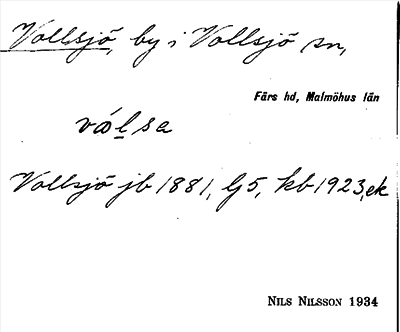 Vollsjö, by i Vollsjö sn,
Färs hd, Malmöhus län
vól̲sa
Vollsjö jb 1881, G5, kb 1923, ek
NILS NILSSON 1934